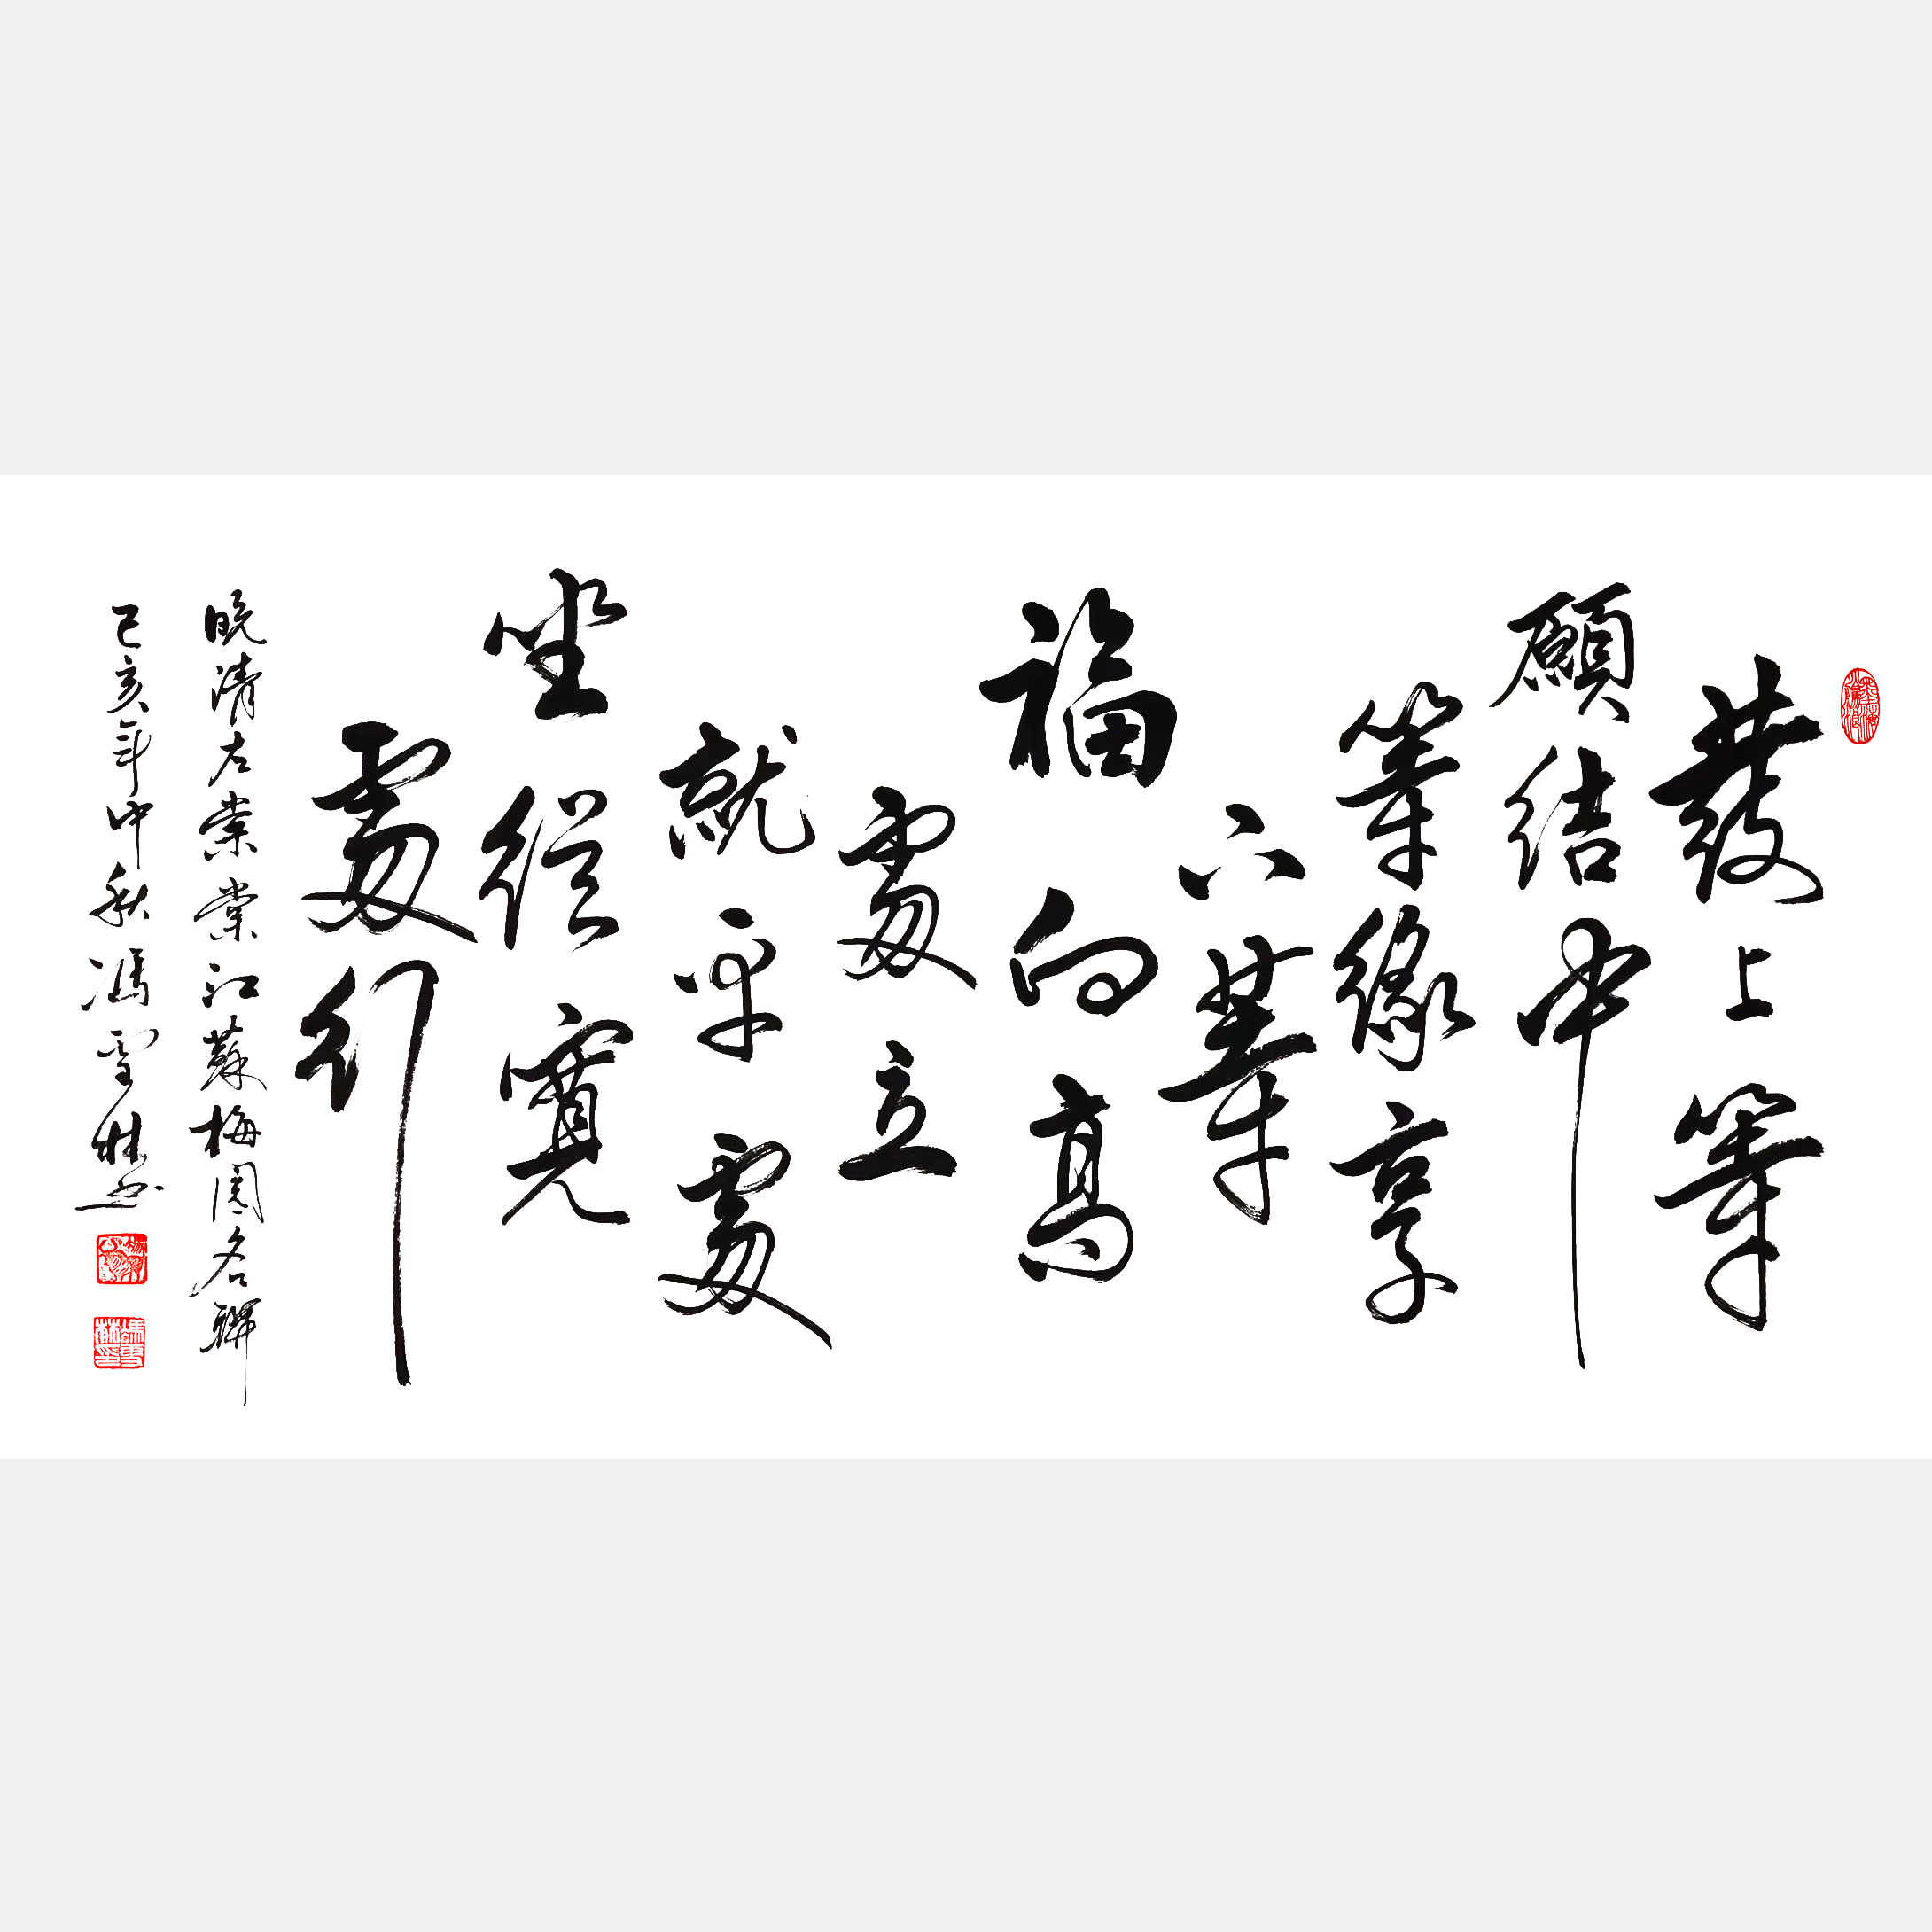 發上等
願結中
等緣享
下等
福向高
處立
就平處
坐從寬
處行
晚清左棠棠江蘇梅園名聯
己亥年中秋馮雪林書
馮雪林印